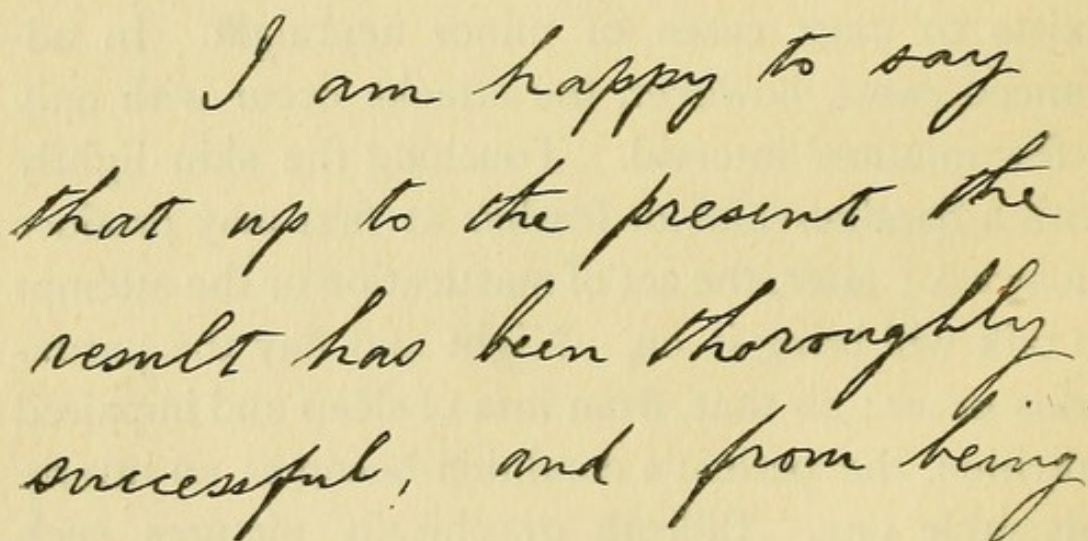 I am happy to say
that up to the present the
result has been thoroughly
successful, and from being